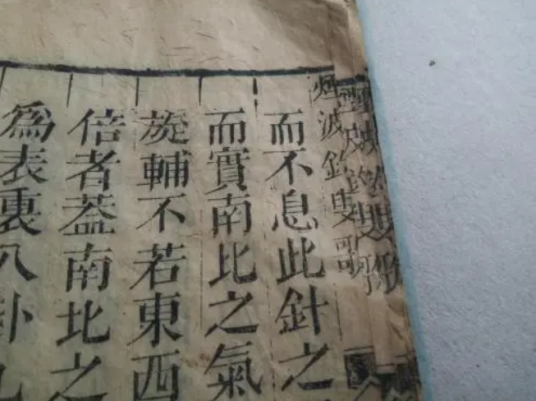 烟波釣叟歌
而不息此針之
而實南北之氣
旋輔不若東西
倍者葢南北之
為表裏八卦